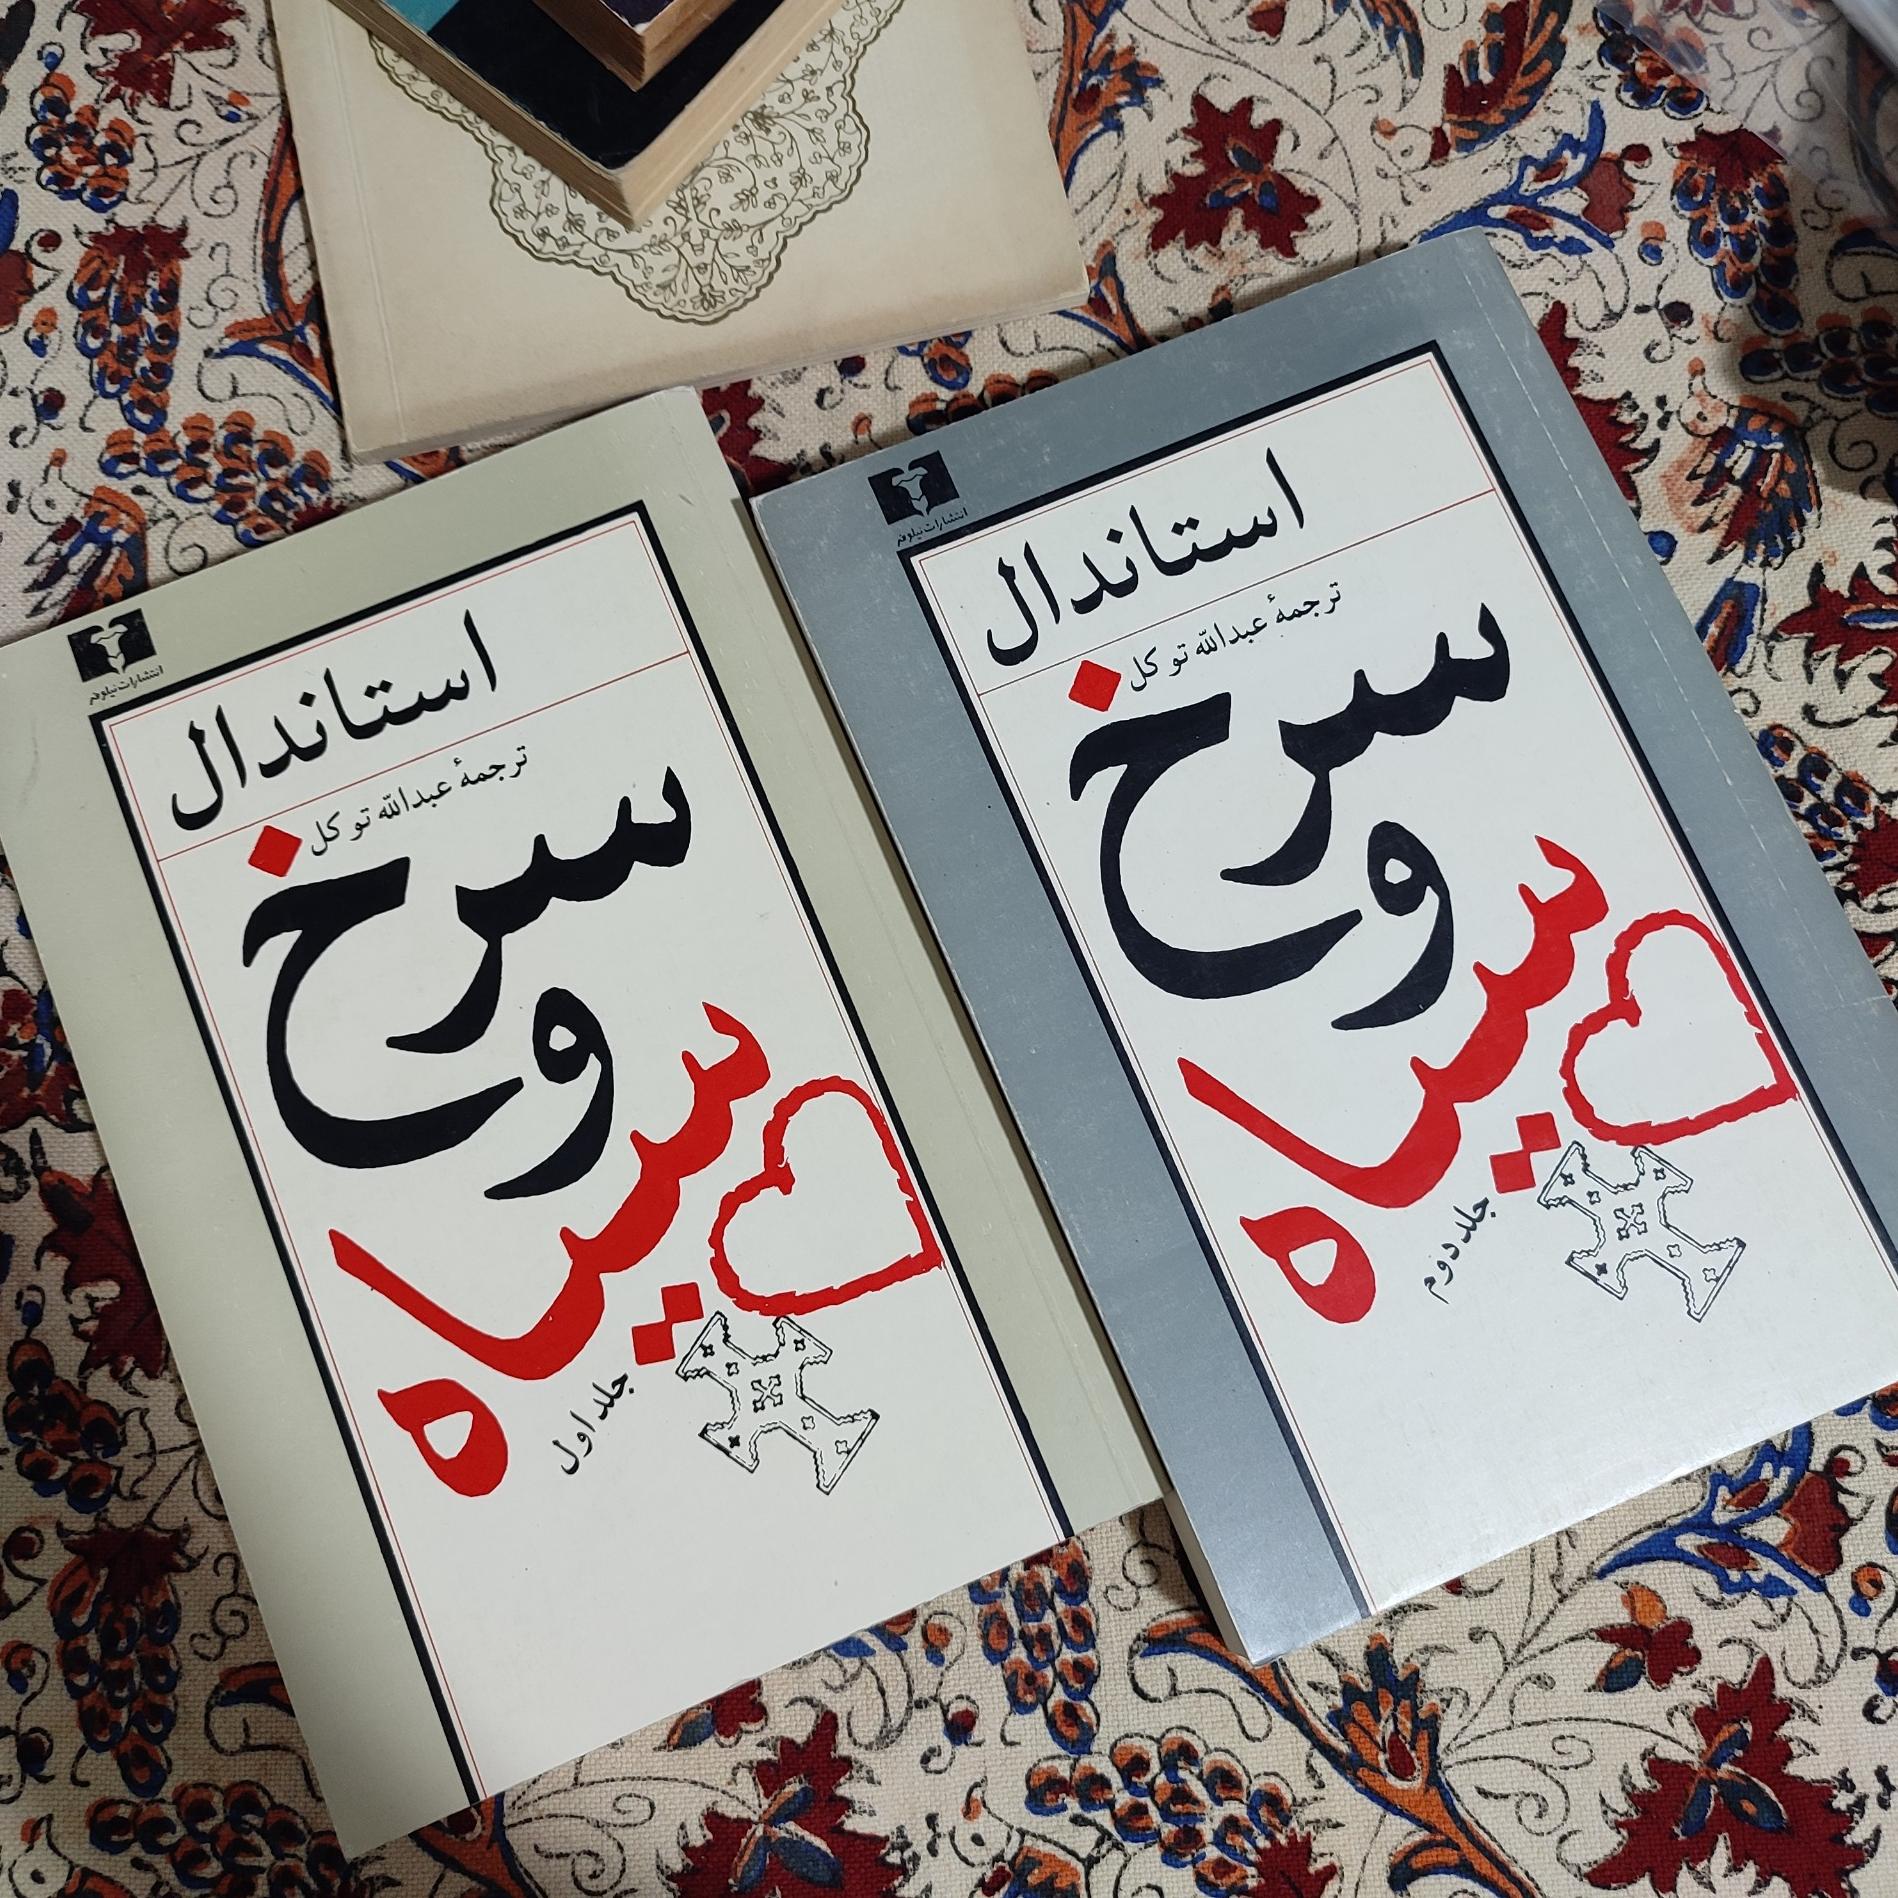 انتشارات نیلوفر
استاندال
ترجمهٔ عبدالله توکل
سرخ
و
سیاه
جلد اول
انتشارات نیلوفر
استاندال
ترجمهٔ عبدالله توکل
سرخ
و
سیاه
جلد دوم